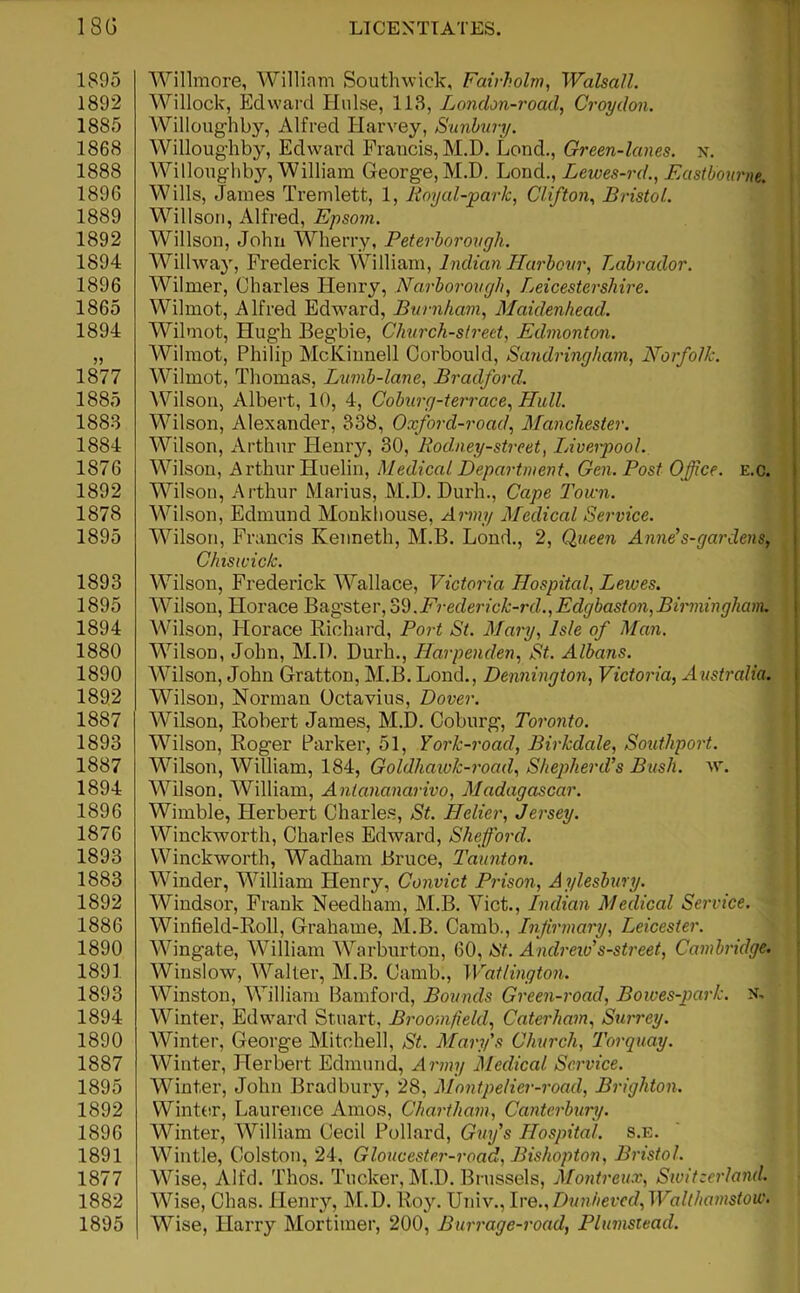 186 LICENTIATES.
1895 Willmore, William Southwick, Fairholm, Walsall.
1892 Willock, Edward Hulse, 113, London-road, Croydon.
1885 Willoughby, Alfred Harvey, Sunbury.
1868 Willoughby, Edward Francis, M.D. Lond., Green-lanes. N.
1888 Willoughby, William George, M.D. Lond., Lewes-rd., Eastbourne.
1896 Wills, James Tremlett, 1, Royal-park, Clifton, Bristol.
1889 Willson, Alfred, Epsom.
1892 Willson, John Wherry, Peterborough.
1894 Willway, Frederick William, Indian Harbour, Labrador.
1896 Wilmer, Charles Henry, Narborough, Leicestershire.
1865 Wilmot, Alfred Edward, Burnham, Maidenhead.
1894 Wilmot, Hugh Begbie, Church-street, Edmonton.
„ Wilmot, Philip McKinnell Corbould, Sandringham, Norfolk.
1877 Wilmot, Thomas, Lumb-lane, Bradford.
1885 Wilson, Albert, 10, 4, Coburg-terrace, Hull.
1883 Wilson, Alexander, 338, Oxford-road, Manchester.
1884 Wilson, Arthur Henry, 30, Rodney-street, Liverpool.
1876 Wilson, Arthur Huelin, Medical Department, Gen. Post Office. E.C.
1892 Wilson, Arthur Marius, M.D. Durh., Cape Town.
1878 Wilson, Edmund Monkhouse, Army Medical Service.
1895 Wilson, Francis Kenneth, M.B. Lond., 2, Queen Anne's-gardens,
Chiswick.
1893 Wilson, Frederick Wallace, Victoria Hospital, Lewes.
1895 Wilson, Horace Bagster, 39. Frederick-rd., Edgbaston, Birmingham.
1894 Wilson, Horace Richard, Port St. Mary, Isle of Man.
1880 Wilson, John, M.D. Durh., Harpenden, St. Albans.
1890 Wilson, John Gratton, M.B. Lond., Dennington, Victoria, Australia.
1892 Wilson, Norman Octavius, Dover.
1887 Wilson, Robert James, M.D. Coburg, Toronto.
1893 Wilson, Roger Parker, 51, York-road, Birkdale, Southport.
1887 Wilson, William, 184, Goldhawk-road, Shepherd's Bush. W.
1894 Wilson, William, Antananarivo, Madagascar.
1896 Wimble, Herbert Charles, St. Helier, Jersey.
1876 Winckworth, Charles Edward, Shefford.
1893 Winckworth, Wadham Bruce, Taunton.
1883 Winder, William Henry, Convict Prison, Aylesbury.
1892 Windsor, Frank Needham, M.B. Vict., Indian Medical Service.
1886 Winfield-Roll, Grahame, M.B. Camb., Infirmary, Leicester.
1890 Wingate, William Warburton, 60, St. Andrew's-street, Cambridge.
1891 Winslow, Walter, M.B. Camb., Watlington.
1893 Winston, William Bamford, Bounds Green-road, Bowes-park. N.
1894 Winter, Edward Stuart, Broomfield, Caterham, Surrey.
1890 Winter, George Mitchell, St. Mary's Church, Torquay.
1887 Winter, Herbert Edmund, Army Medical Service.
1895 Winter, John Bradbury, 28, Montpelier-road, Brighton.
1892 Winter, Laurence Amos, Chartham, Canterbury.
1896 Winter, William Cecil Pollard, Guy's Hospital. S.E.
1891 Wintle, Colston, 24, Gloucester-road, Bishopton, Bristol.
1877 Wise, Alfd. Thos. Tucker, M.D. Brussels, Montreux, Switzerland.
1882 Wise, Chas. Henry, M.D. Roy. Univ., Ire., Dunheved, Walthamstow.
1895 Wise, Harry Mortimer, 200, Burrage-road, Plumstead.